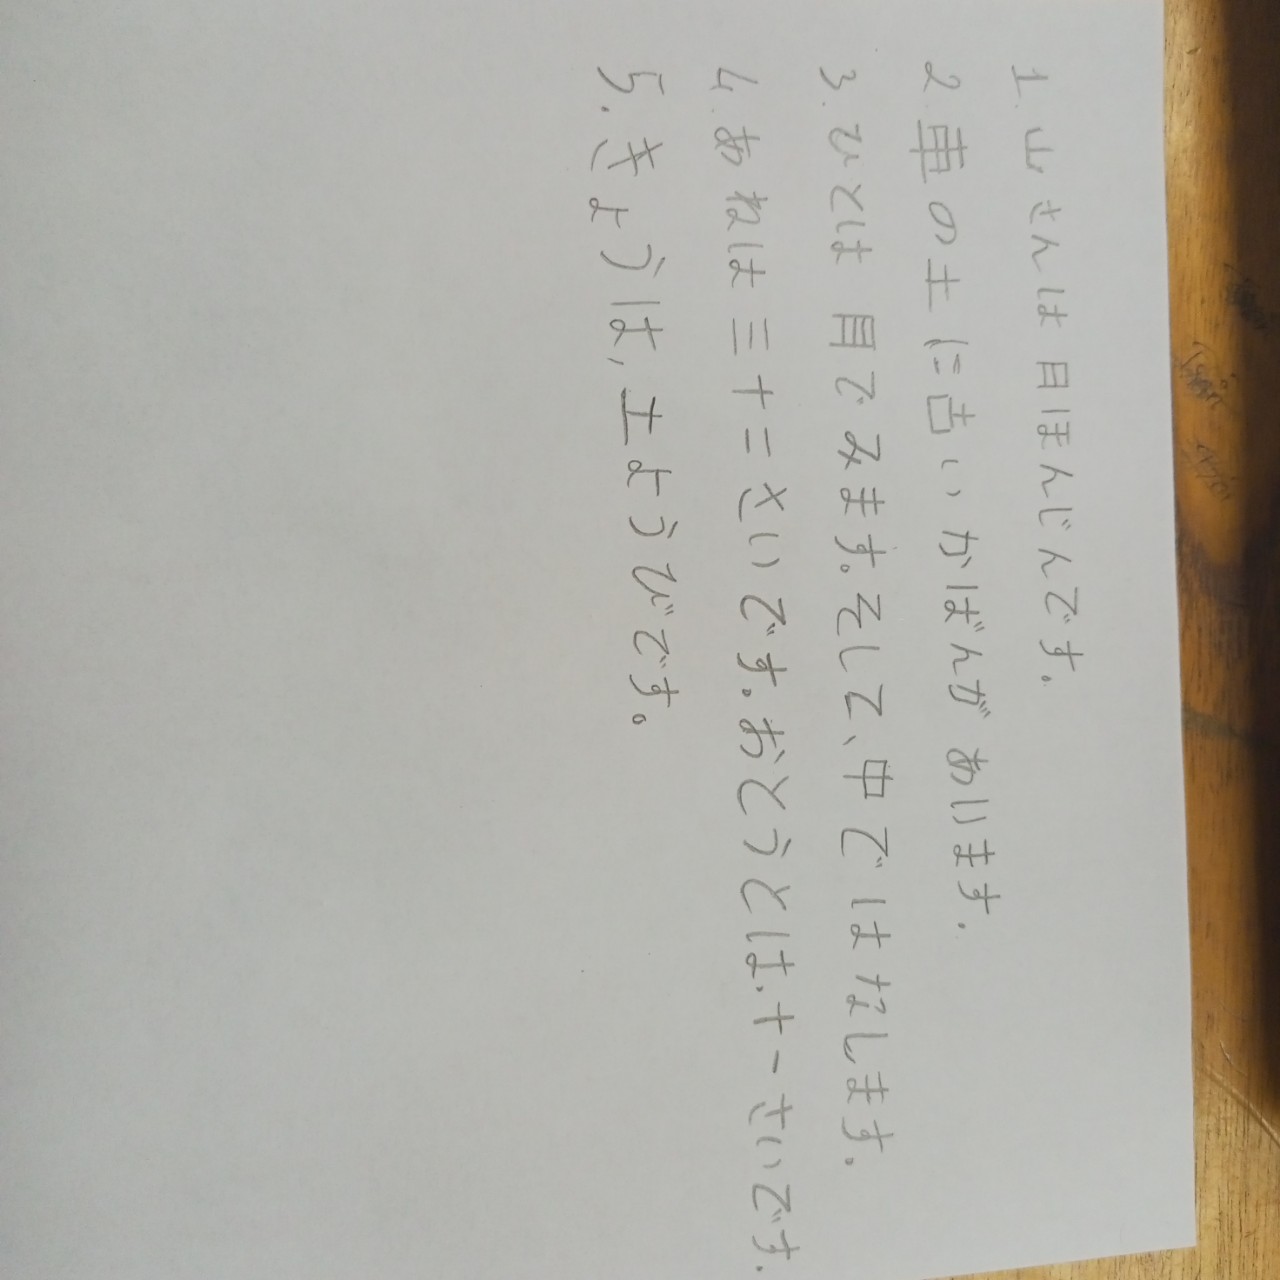 1. 山さんは日ほんじんです。
2. 車の土に古いかばんがあります.
3. ひとは目でみます。そして、中ではなします。
4. あねは三十二さいです。おとうとは、十一さいです.
5. きようは, 土ようびです。